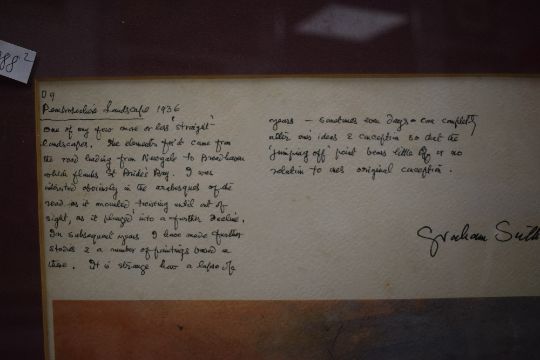 D9
Pembrokeshire Landscape 1936
One of my few more or less 'straight'
landscapes. The elements for it came from
the road leading from Newgale to Broadhaven
which flanks St Bride's Bay. I was
interested obviously in the arabesques of the
road as it mounted twisting until out of
sight, as it plunged into a further decline.
In subsequent years I have made further
studies & a number of paintings based on
these. It is strange how a lapse of
years — sometimes even days — can completely
alter one's ideas & conception so that the
'jumping off' point bears little or no
relation to one's original conception.
Graham Suth